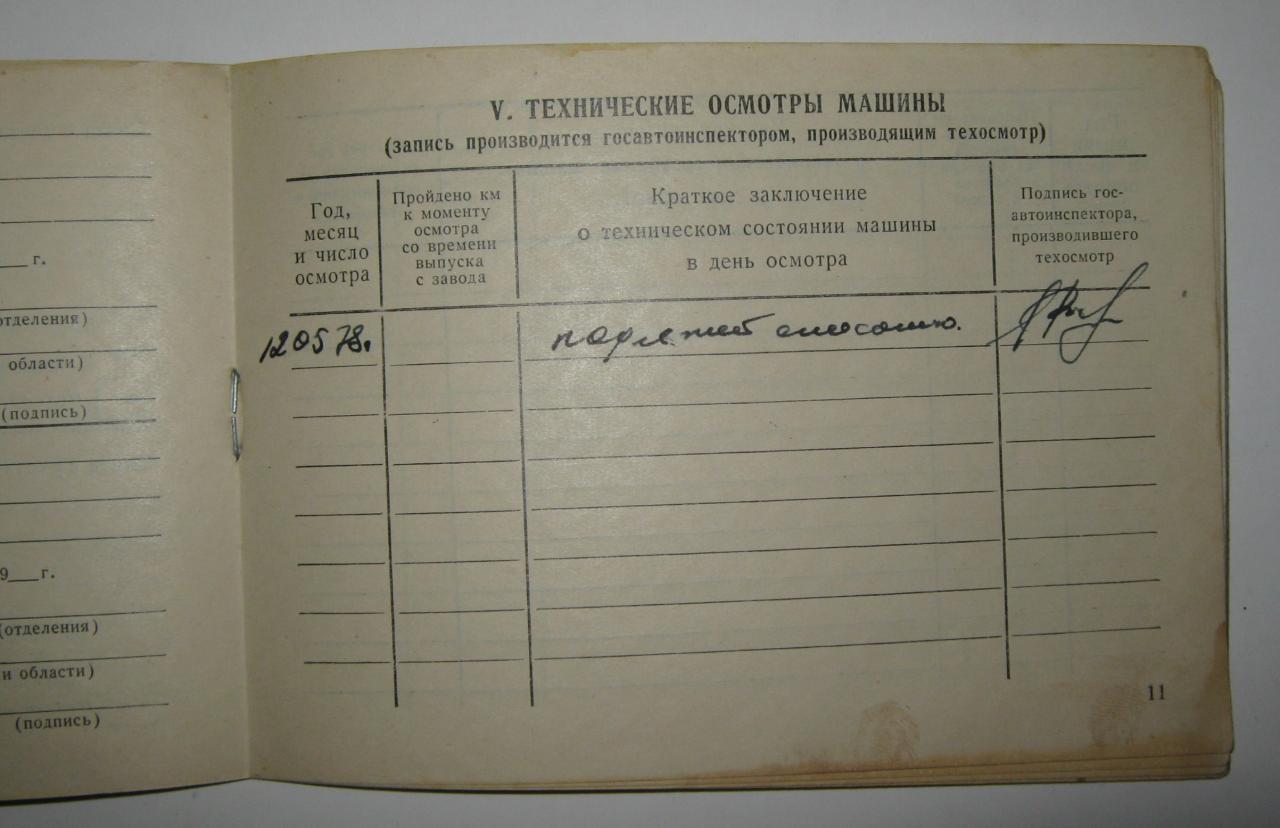 г.
отделения)
области)
(подпись)
9 г.
(отделения)
и области)
(подпись)
V. ТЕХНИЧЕСКИЕ ОСМОТРЫ МАШИНЫ
(запись производится госавтоинспектором, производящим техосмотр)
Год,
месяц
и число
осмотра
Пройдено км
к моменту
осмотра
со времени
выпуска
с завода
Краткое заключение
о техническом состоянии машины
в день осмотра
Подпись гос-
автоинспектора,
производившего
техосмотр
120578.
подлежит списанию.
11